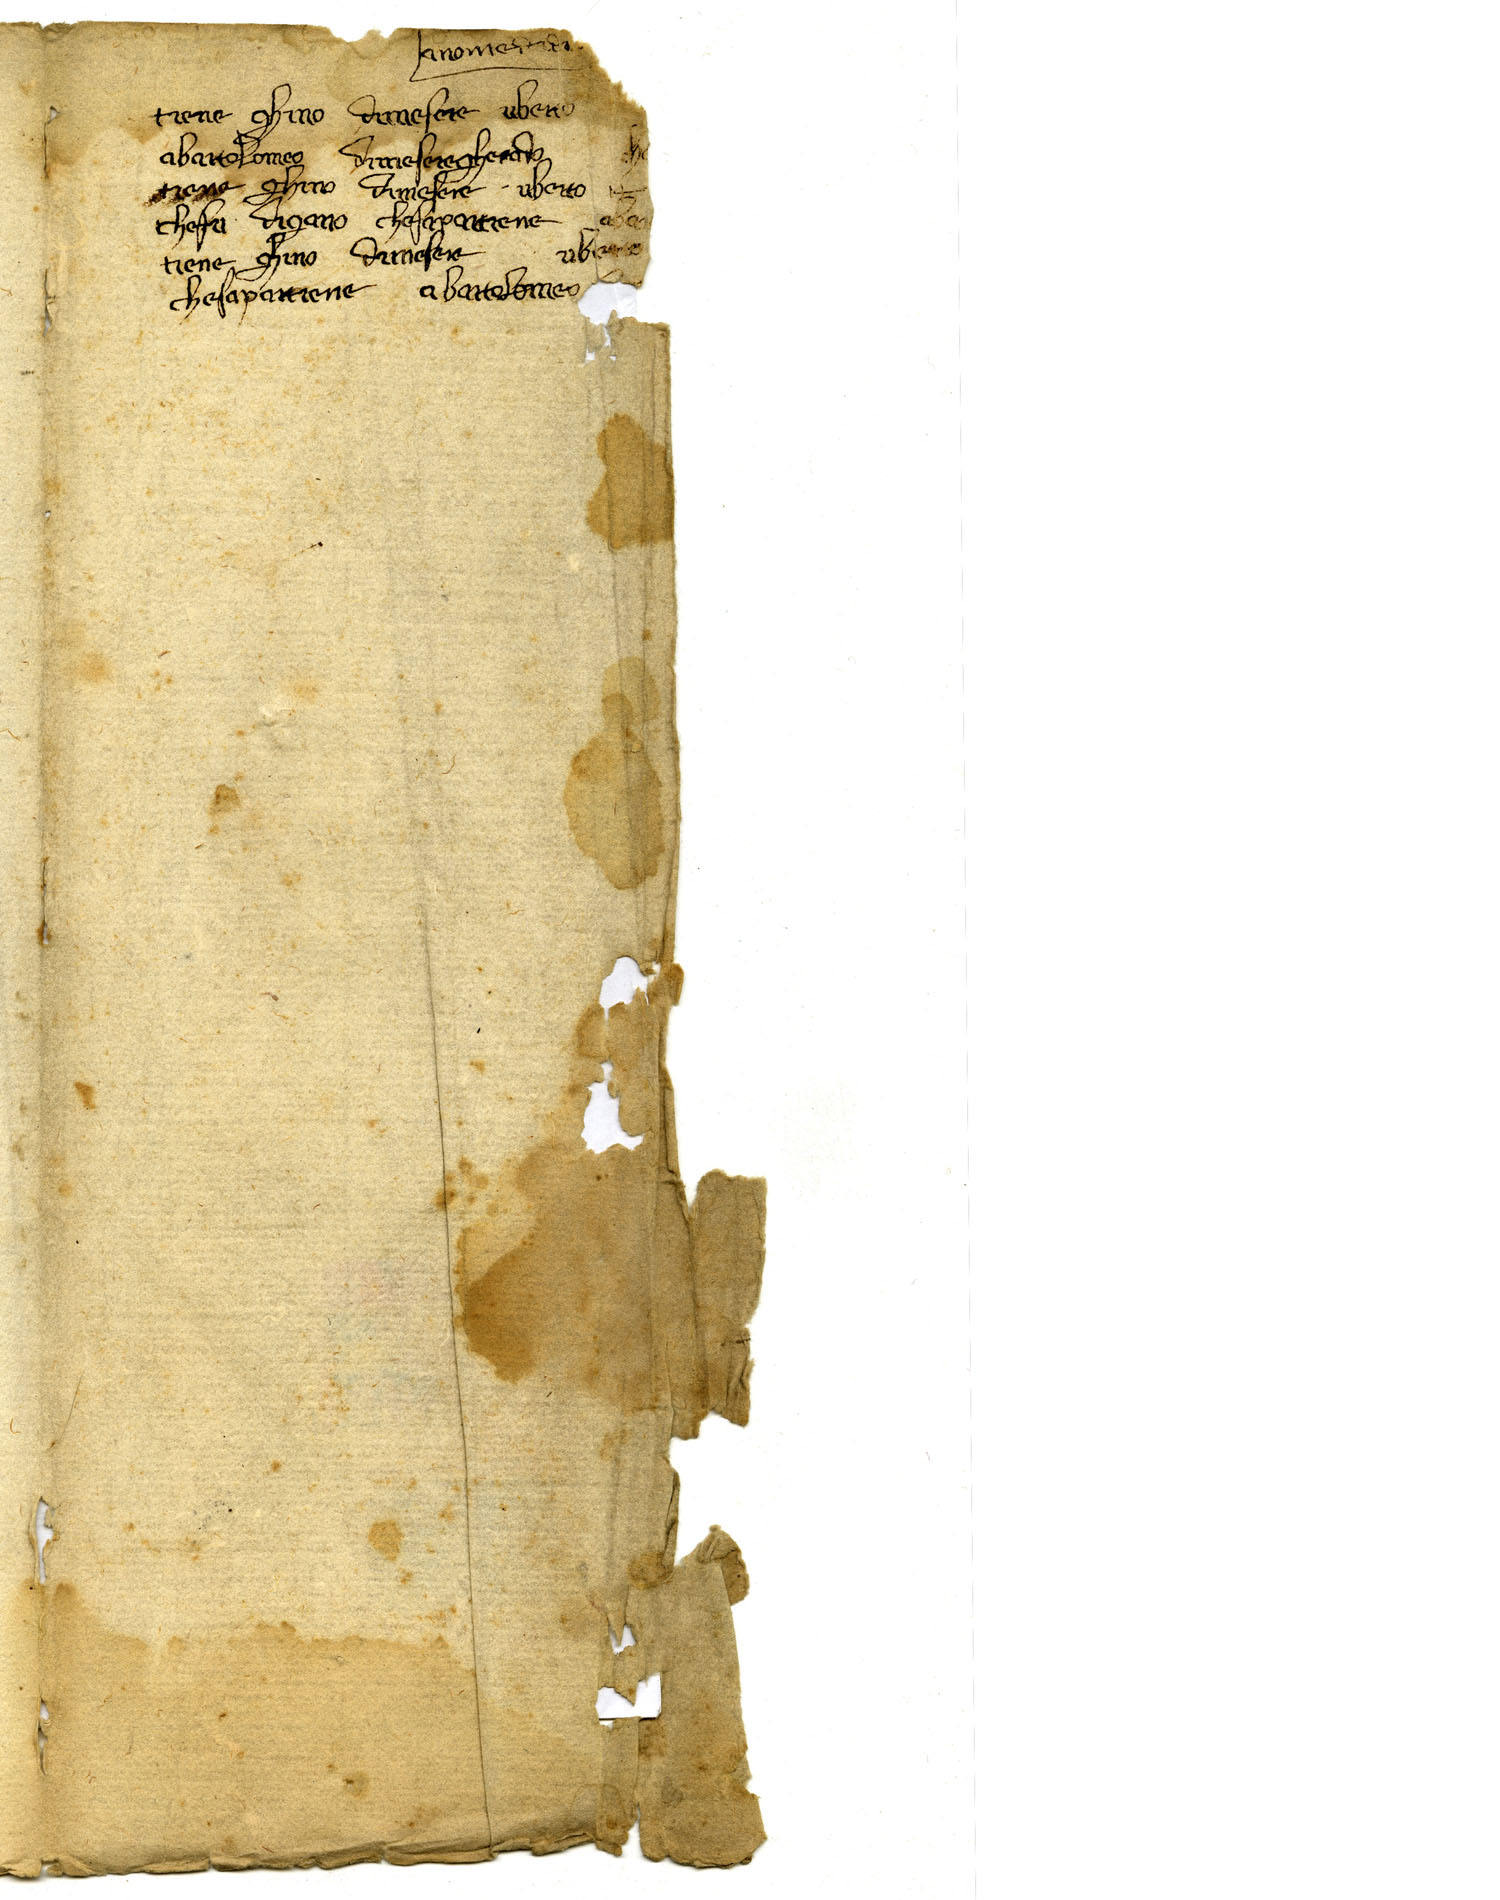 tiene ghino dimesere uberto
abartolomeo dimeseregherardo
tiene ghino dimesere uberto
chefu digano chesapartiene
tiene ghino dimesere uberto
chesapartiene abartolomeo